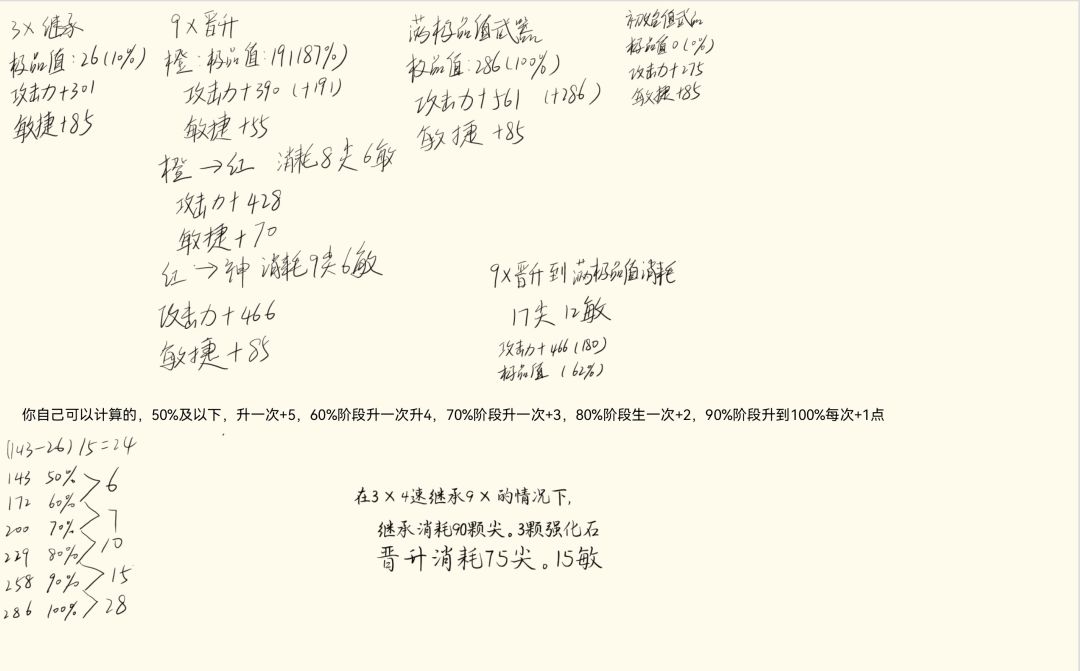 3X 继承
极品值:26(10%)
攻击力+301
敏捷+85
9X晋升
橙:极品值:191(87%)
攻击力+390 (+191)
敏捷+55
橙→红 消耗8尖6敏
攻击力+428
敏捷+70
红→神 消耗9尖6敏
攻击力+466
敏捷+85
满极品值武器
极品值:286(100%)
攻击力+561 (+286)
敏捷+85
初始值武器
极品值0(0%)
攻击力+275
敏捷+85
9X晋升到满极品值消耗
17尖 12敏
攻击力+466(180)
极品值 (62%)
你自己可以计算的，50%及以下，升一次+5，60%阶段升一次升4，70%阶段升一次+3，80%阶段生一次+2，90%阶段升到100%每次+1点
(143-26)/5=24
143 50%
172 60%
200 70%
229 80%
258 90%
286 100%
6
7
10
15
28
在3X4速继承9X的情况下,
继承消耗90颗尖。3颗强化石
晋升消耗75尖。15敏